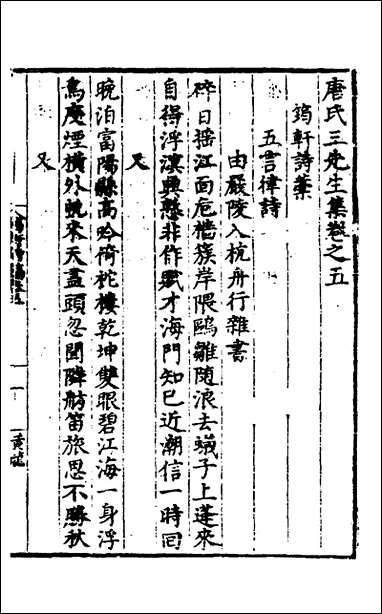 唐氏三先生集卷之五
筠軒詩藁
五言律詩
由嚴陵入杭舟行雜書
碎日搖江面危檣簇岸隈鷗雛隨浪去蟻子上蓬來
自得浮溟興懸非作賦才海門知已近潮信一時囘
又
晚泊富陽縣高吟荷柁樓乾坤雙眼碧江海一身浮
鳥度煙橫外帆來天盡頭忽聞隣舫笛旅思不勝秋
又